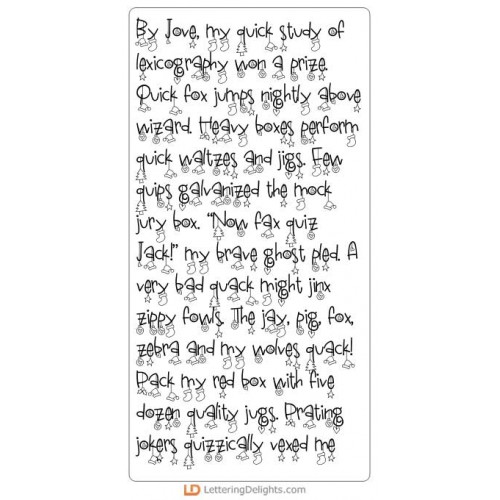 By Jove, my quick study of
lexicography won a prize.
Quick fox jumps nightly above
wizard. Heavy boxes perform
quick waltzes and jigs. Few
quips galvanized the mock
jury box. "Now fax quiz
Jack!" my brave ghost pled. A
very bad quack might jinx
zippy fowls. The jay, pig, fox,
zebra and my wolves quack!
Pack my red box with five
dozen quality jugs. Prating
jokers quizzically vexed me
LD LetteringDelights.com